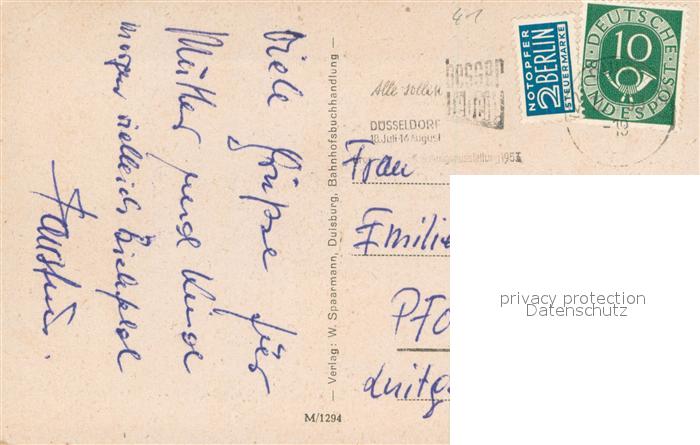 Viele Grüße für
Mutter und Kind
morgen vielleicht Bielefeld
— Verlag: W. Spaarmann, Duisburg, Bahnhofsbuchhandlung —
M/1294
41
Alle sollen
besser
leben
DÜSSELDORF
18. Juli-16 August
1953
NOTOPFER
2 BERLIN
STEUERMARKE
DEUTSCHE
10
BUNDESPOST
Frau
Emilie
PFO
Luitg
privacy protection
Datenschutz